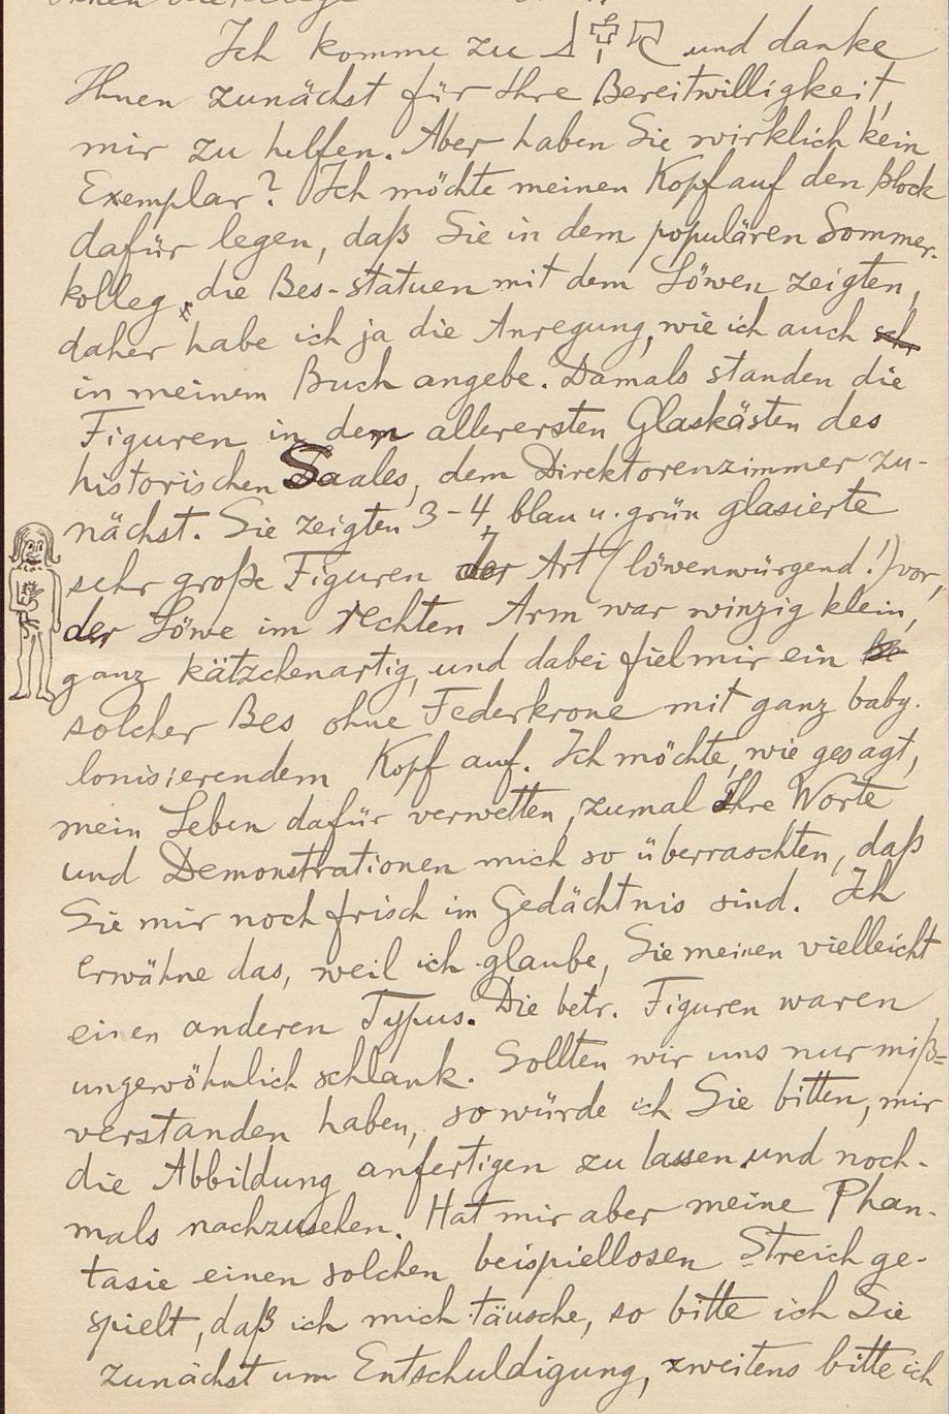 Ich komme zu und danke
Ihnen zunächst für Ihre Bereitwilligkeit,
mir zu helfen. Aber haben Sie wirklich kein
Exemplar? Ich möchte meinen Kopf auf den Block
dafür legen, daß Sie in dem populären Sommer-
kolleg die Bes-statuen mit dem Löwen zeigten,
daher habe ich ja die Anregung, wie ich auch
in meinem Buch angebe. Damals standen die
Figuren in den allerersten Glaskästen des
historischen Saales, dem Direktorenzimmer zu-
nächst. Sie zeigten 3-4, blau u. grün glasierte
sehr große Figuren der Art (löwenwürgend!) vor,
der Löwe im rechten Arm war winzig klein,
ganz kätzchenartig, und dabei fiel mir ein
solcher Bes ohne Federkrone mit ganz baby-
lonisierendem Kopf auf. Ich möchte, wie gesagt,
mein Leben dafür verwetten, zumal Ihre Worte
und Demonstrationen mich so überraschten, daß
Sie mir noch frisch im Gedächtnis sind. Ich
erwähne das, weil ich glaube, Sie meinen vielleicht
einen anderen Typus. Die betr. Figuren waren
ungewöhnlich schlank. Sollten wir uns nur miß=
verstanden haben, so würde ich Sie bitten, mir
die Abbildung anfertigen zu lassen und noch-
mals nachzusehen. Hat mir aber meine Phan-
tasie einen solchen beispiellosen Streich ge-
spielt, daß ich mich täusche, so bitte ich Sie
zunächst um Entschuldigung, zweitens bitte ich